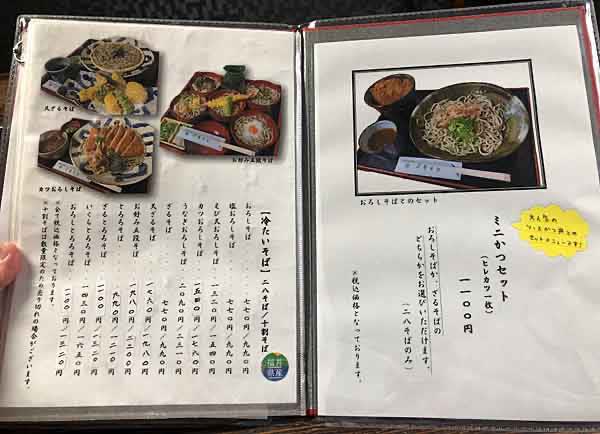 天ざるそば
カツおろしそば
お好み五段そば
【冷たいそば】二八そば/十割そば
おろしそば・・・・・七七〇円/九九〇円
塩おろしそば・・・・・七七〇円/九九〇円
えび天おろしそば・・・一三二〇円/一五四〇円
カツおろしそば・・・・一五四〇円/一七六〇円
うなぎおろしそば・・・二〇九〇円/二三一〇円
ざるそば・・・・・七七〇円/九九〇円
天ざるそば・・・・・一七六〇円/一九八〇円
お好み五段そば・・・・一九八〇円/二二〇〇円
とろろそば・・・・・九九〇円/一二一〇円
ざるとろろそば・・・・一一〇〇円/一三二〇円
いくらとろろそば・・・一四三〇円/一六五〇円
おろしとろろそば・・・一一〇〇円/一三二〇円
※全て税込価格となっております。
※十割そばは数量限定のため売り切れの場合がございます。
福井
県産
おろしそばとのセット
ミニかつセット
(ヒレカツ一枚)
一一〇〇円
おろしそばか、ざるそばの
どちらかをお選びいただけます。
(二八そばのみ)
※税込価格となっております。
大人気の
ソースかつ丼との
セットメニューです!